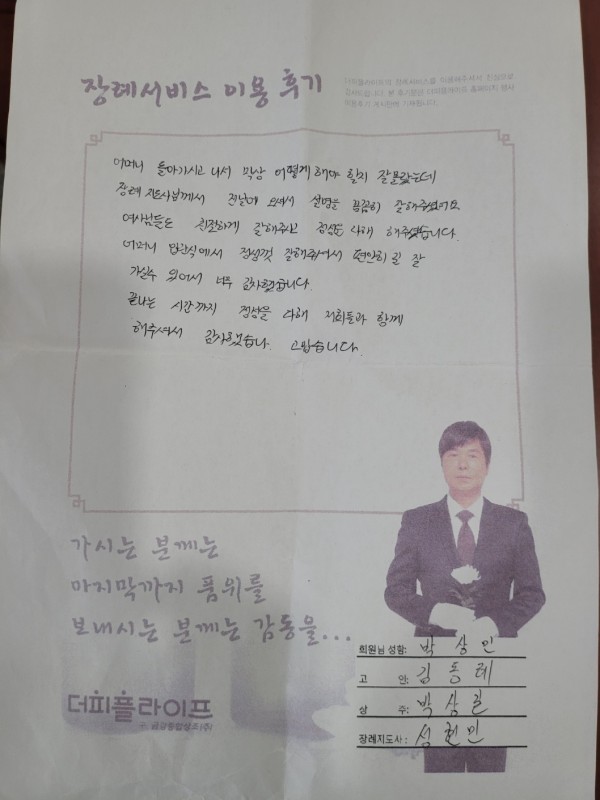 장례서비스 이용 후기
더피플라이프의 장례서비스를 이용해주셔서 진심으로
감사드립니다. 본 후기문은 더피플라이프 홈페이지 행사
이용후기 게시판에 기재됩니다.
어머니 돌아가시고 나서 막상 어떻게 해야 할지 잘몰랐는데
장례 지도사님께서 전날에 오셔서 설명을 꼼꼼히 잘해주셨어요
여사님들도 친절하게 잘해주시고 정성을 다해 해주셨습니다.
어머니 입관식에서 정성껏 잘해주셔서 편안히 길 잘
가실수 있어서 너무 감사했습니다.
끝나는 시간까지 정성을 다해 저희들과 함께
해주셔서 감사했습니다. 고맙습니다.
가시는 분께는
마지막까지 품위를
보내시는 분께는 감동을...
더피플라이프
구. 금강종합상조(주)
회원님 성함: 박상민
고 인: 김동례
상 주: 박상길
장례지도사: 성현민